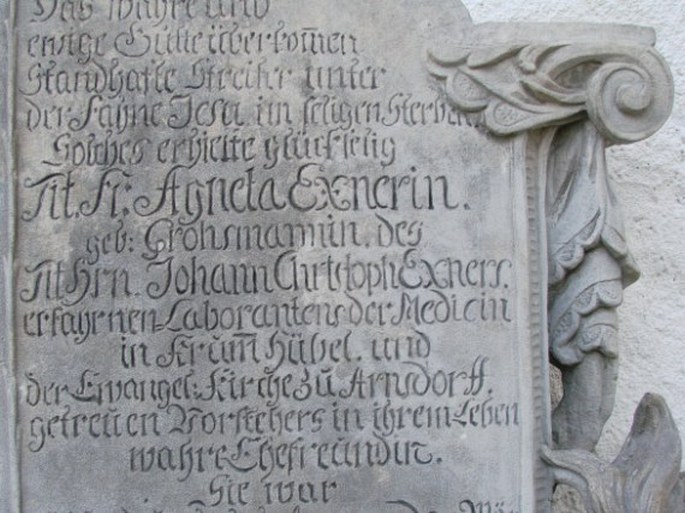 Das wahre und
ewige Gutte überkom̄en
Standhafte Streiter unter
der Fahne Jesu im seligen Sterben
Solches erhielte glückselig
Tit. Fr: Agneta Exnerin.
geb: Grohsmannin, des
Tit Hrn. Johann Christoph Exners.
erfahrnen Laborantens der Medicin
in Krum̄ Hübel. und
der Evangel: Kirche zu Arnsdorff.
getreuen Vorstehers in ihrem Leben
wahre Ehefreundin.
Sie war